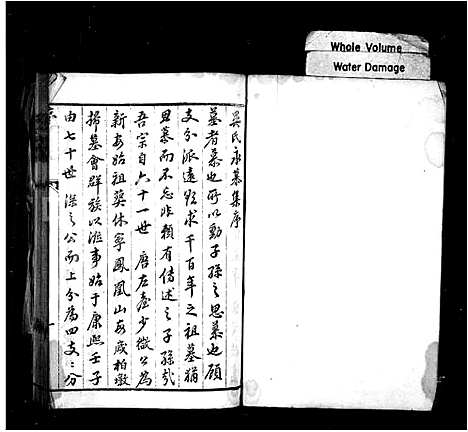 Whole Volume
Water Damage
吳氏永墓集序
墓者慕也所以動子孫之思慕也顧
支分派遠欲求千百年之祖墓猶
思慕而不忘非賴有傳述之子孫乎
吾宗自六十一世唐左臺少微公為
新安始祖葬休寧鳳凰山每歲柏墩
掃墓會群族以涖事始于康熙壬子
由七十世深之公而上分為四支之分